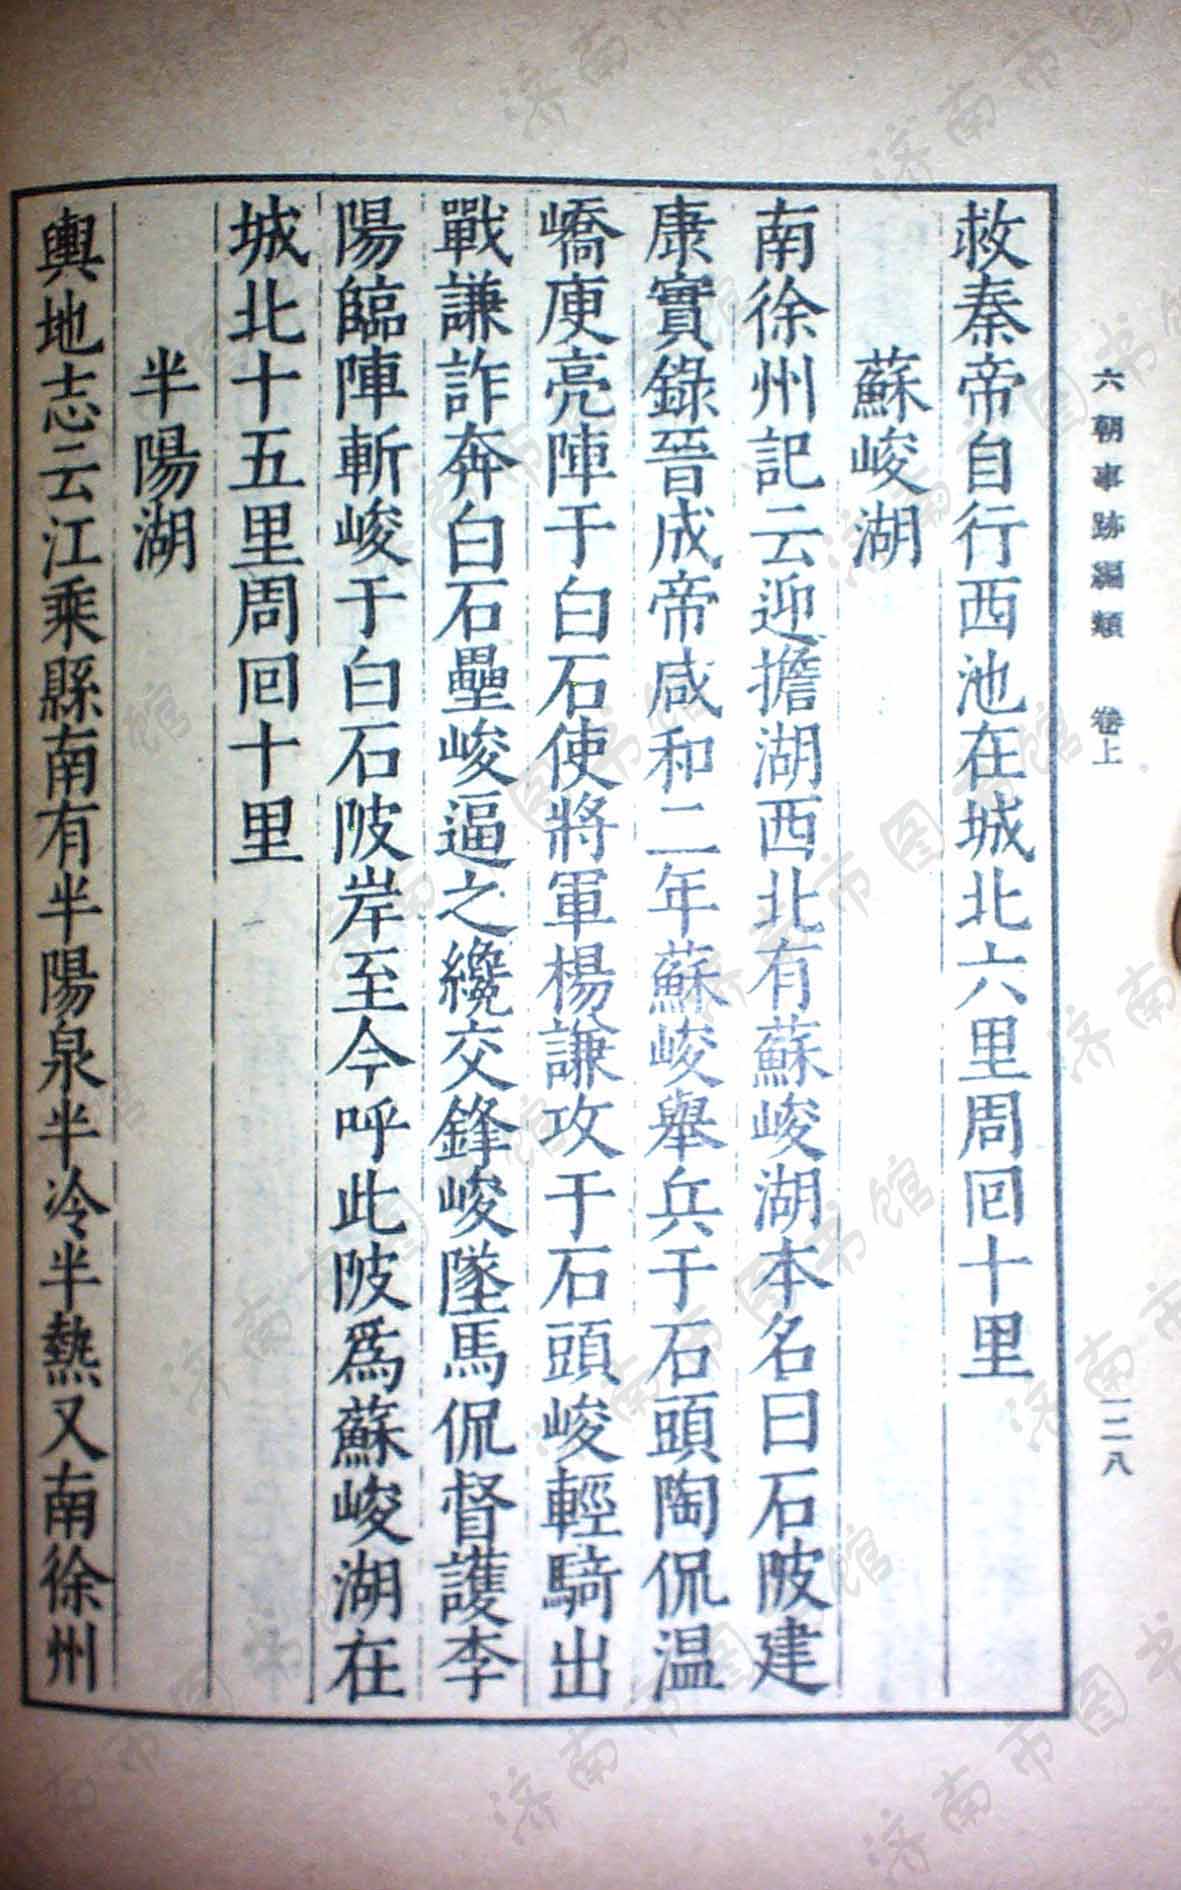 六朝事跡編類　卷上
一二八
救秦帝自行西池在城北六里周回十里
蘇峻湖
南徐州記云迎擔湖西北有蘇峻湖本名曰石陂建
康實錄晉成帝咸和二年蘇峻舉兵于石頭陶侃温
嶠庾亮陣于白石使將軍楊謙攻于石頭峻輕騎出
戰謙詐奔白石壘峻逼之纔交鋒峻墜馬侃督護李
陽臨陣斬峻于白石陂岸至今呼此陂爲蘇峻湖在
城北十五里周回十里
半陽湖
輿地志云江乘縣南有半陽泉半冷半熱又南徐州
济南市图书馆